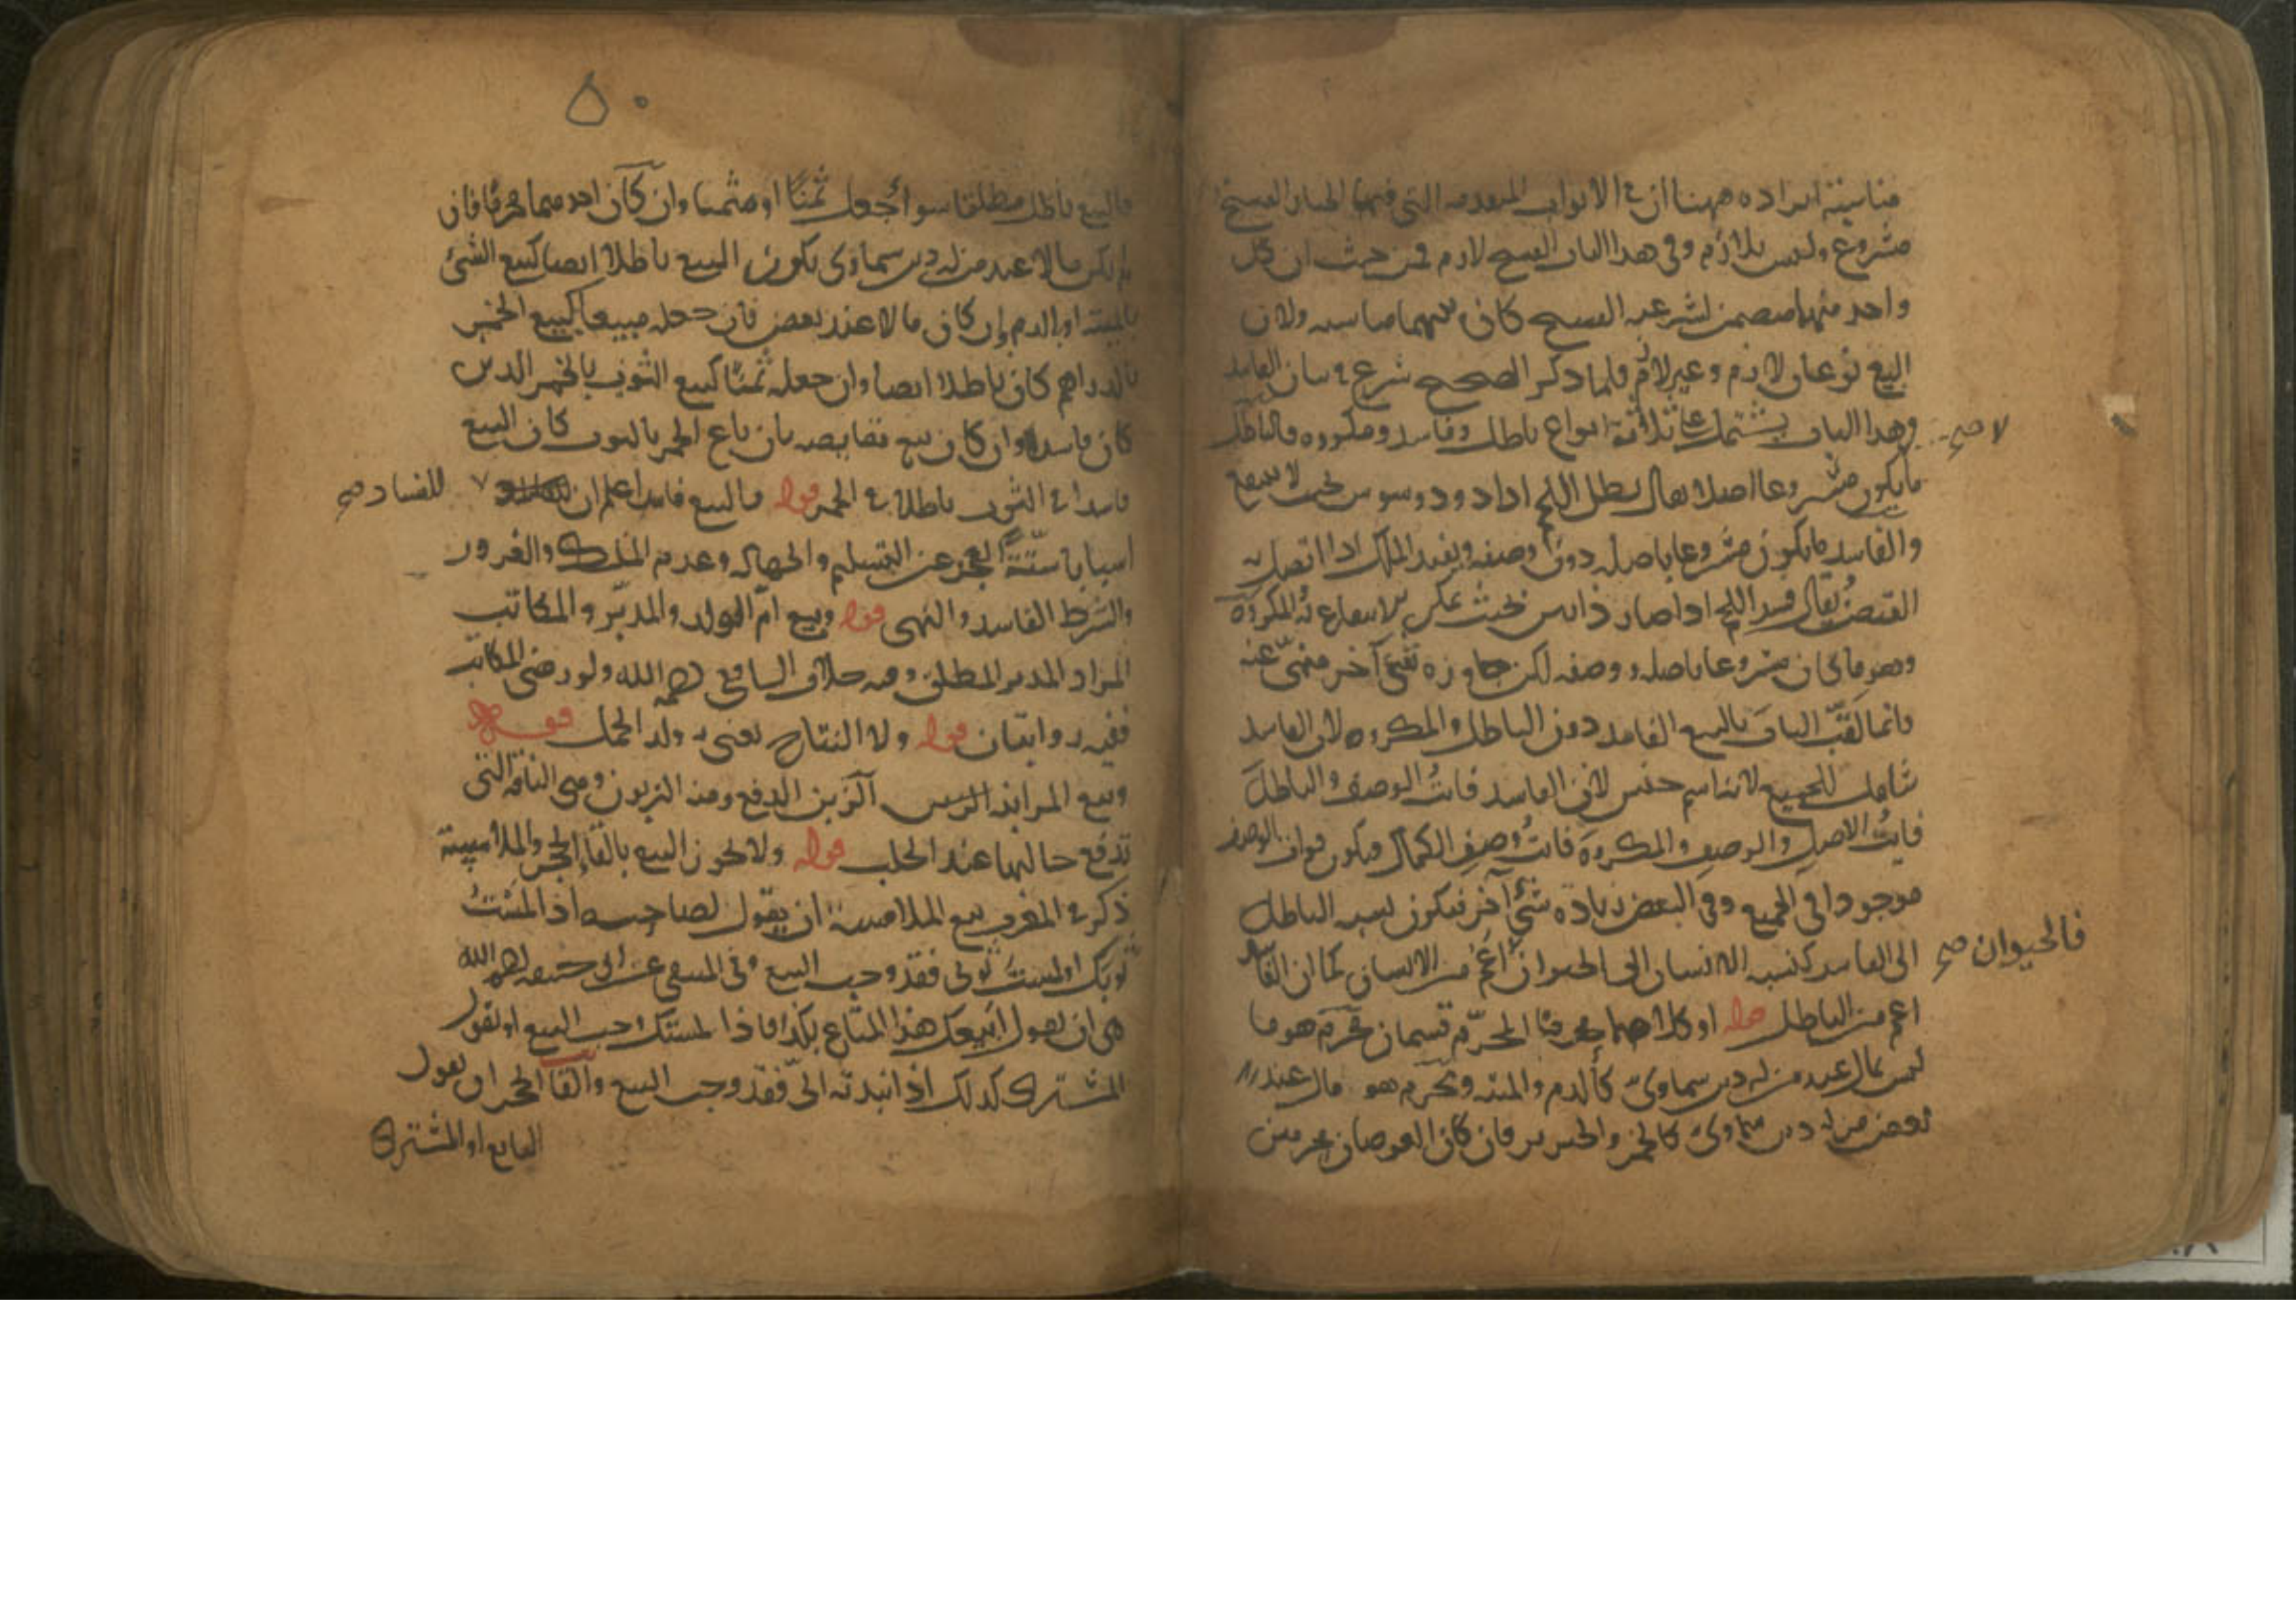 مناسبة ايراده ههنا ان في الابواب المتقدمة التي فيها الخيار الفسخ
مشروع وليس بلازم وفي هذا الباب الفسخ لازم فمن حيث ان كل
واحد منهما متضمن لشرعية الفسخ كان بينهما مناسبة ولان
البيع نوعان لازم وغير لازم فلما ذكر الصحيح شرع في بيان الفاسد
وهذا الباب يشتمل على ثلاثة انواع باطل وفاسد ومكروه فالباطل
لا صح
ما يكون مشروعا اصلا يقال بطل اللحم اذا دود وسوس بحيث لا ينتفع
والفاسد ما يكون مشروعا باصله دون وصفه ويفيد الملك اذا اتصل به
القبض يقال فسد اللحم اذا صار ذا نتن بحيث يمكن الانتفاع به والمكروه
وهو ما كان مشروعا باصله ووصفه لكن جاوره شيء آخر منهي عنه
وانما لقب الباب بالبيع الفاسد دون الباطل والمكروه لان الفاسد
شامل للجميع لانه اسم جنس لان الفاسد فائت الوصف والباطل
فايت الاصل والوصف والمكروه فائت وصف الكمال فيكون فوات الوصف
موجودا في الجميع وفي البعض زيادة شيء آخر فيكون نسبة الباطل
الى الفاسد كنسبة الانسان الى الحيوان اعم من الانسان كما ان الفاسد
فالحيوان صح
اعم من الباطل قوله او كلاهما محرما المحرم قسمان محرم هو ما
ليس بمال عند من له دين سماوي كالدم والميتة ومحرم هو مال عند
بعض من له دين سماوي كالخمر والخنزير فان كان العوضان محرمين
٥٠
فالبيع باطل مطلقا سواء جعل ثمنا او مثمنا وان كان احدهما محرما فان
لم يكن مالا عند من له دين سماوي يكون البيع باطلا ايضا كبيع الشيء
بالميتة او بالدم وان كان مالا عند بعض فان جعله مبيعا كبيع الخمر
بالدراهم كان باطلا ايضا وان جعله ثمنا كبيع الثوب بالخمر الدين
كان فاسدا وان كان بيع مقايضة بان باع الخمر بالثوب كان البيع
فاسدا في الثوب باطلا في الخمر قوله فالبيع فاسد اعلم ان
للفساد صح
اسبابا ستة العجز عن التسليم والجهالة وعدم الملك والغرور
والشرط الفاسد والنهي قوله وبيع ام الولد والمدبر والمكاتب
المراد المدبر المطلق وفيه خلاف الشافعي رحمه الله ولو رضي المكاتب
ففيه روايتان قوله ولا النتاج يعني به ولد الحمل قوله
وبيع المزابنة الزبن الدفع ومنه الزبون وهي الناقة التي
تدفع حالبها عند الحلب قوله ولا يجوز البيع بالقاء الحجر والملامسة
ذكر في المغرب بيع الملامسة ان يقول لصاحبه اذا لمست
ثوبك او لمست ثوبي فقد وجب البيع وفي المنتقى عن ابي حنيفة رحمه الله
هي ان يقول ابيعك هذا المتاع بكذا فاذا لمستك وجب البيع او يقول
المشتري كذلك اذا نبذته الي فقد وجب البيع والقاء الحجر ان يقول
البايع او المشتري